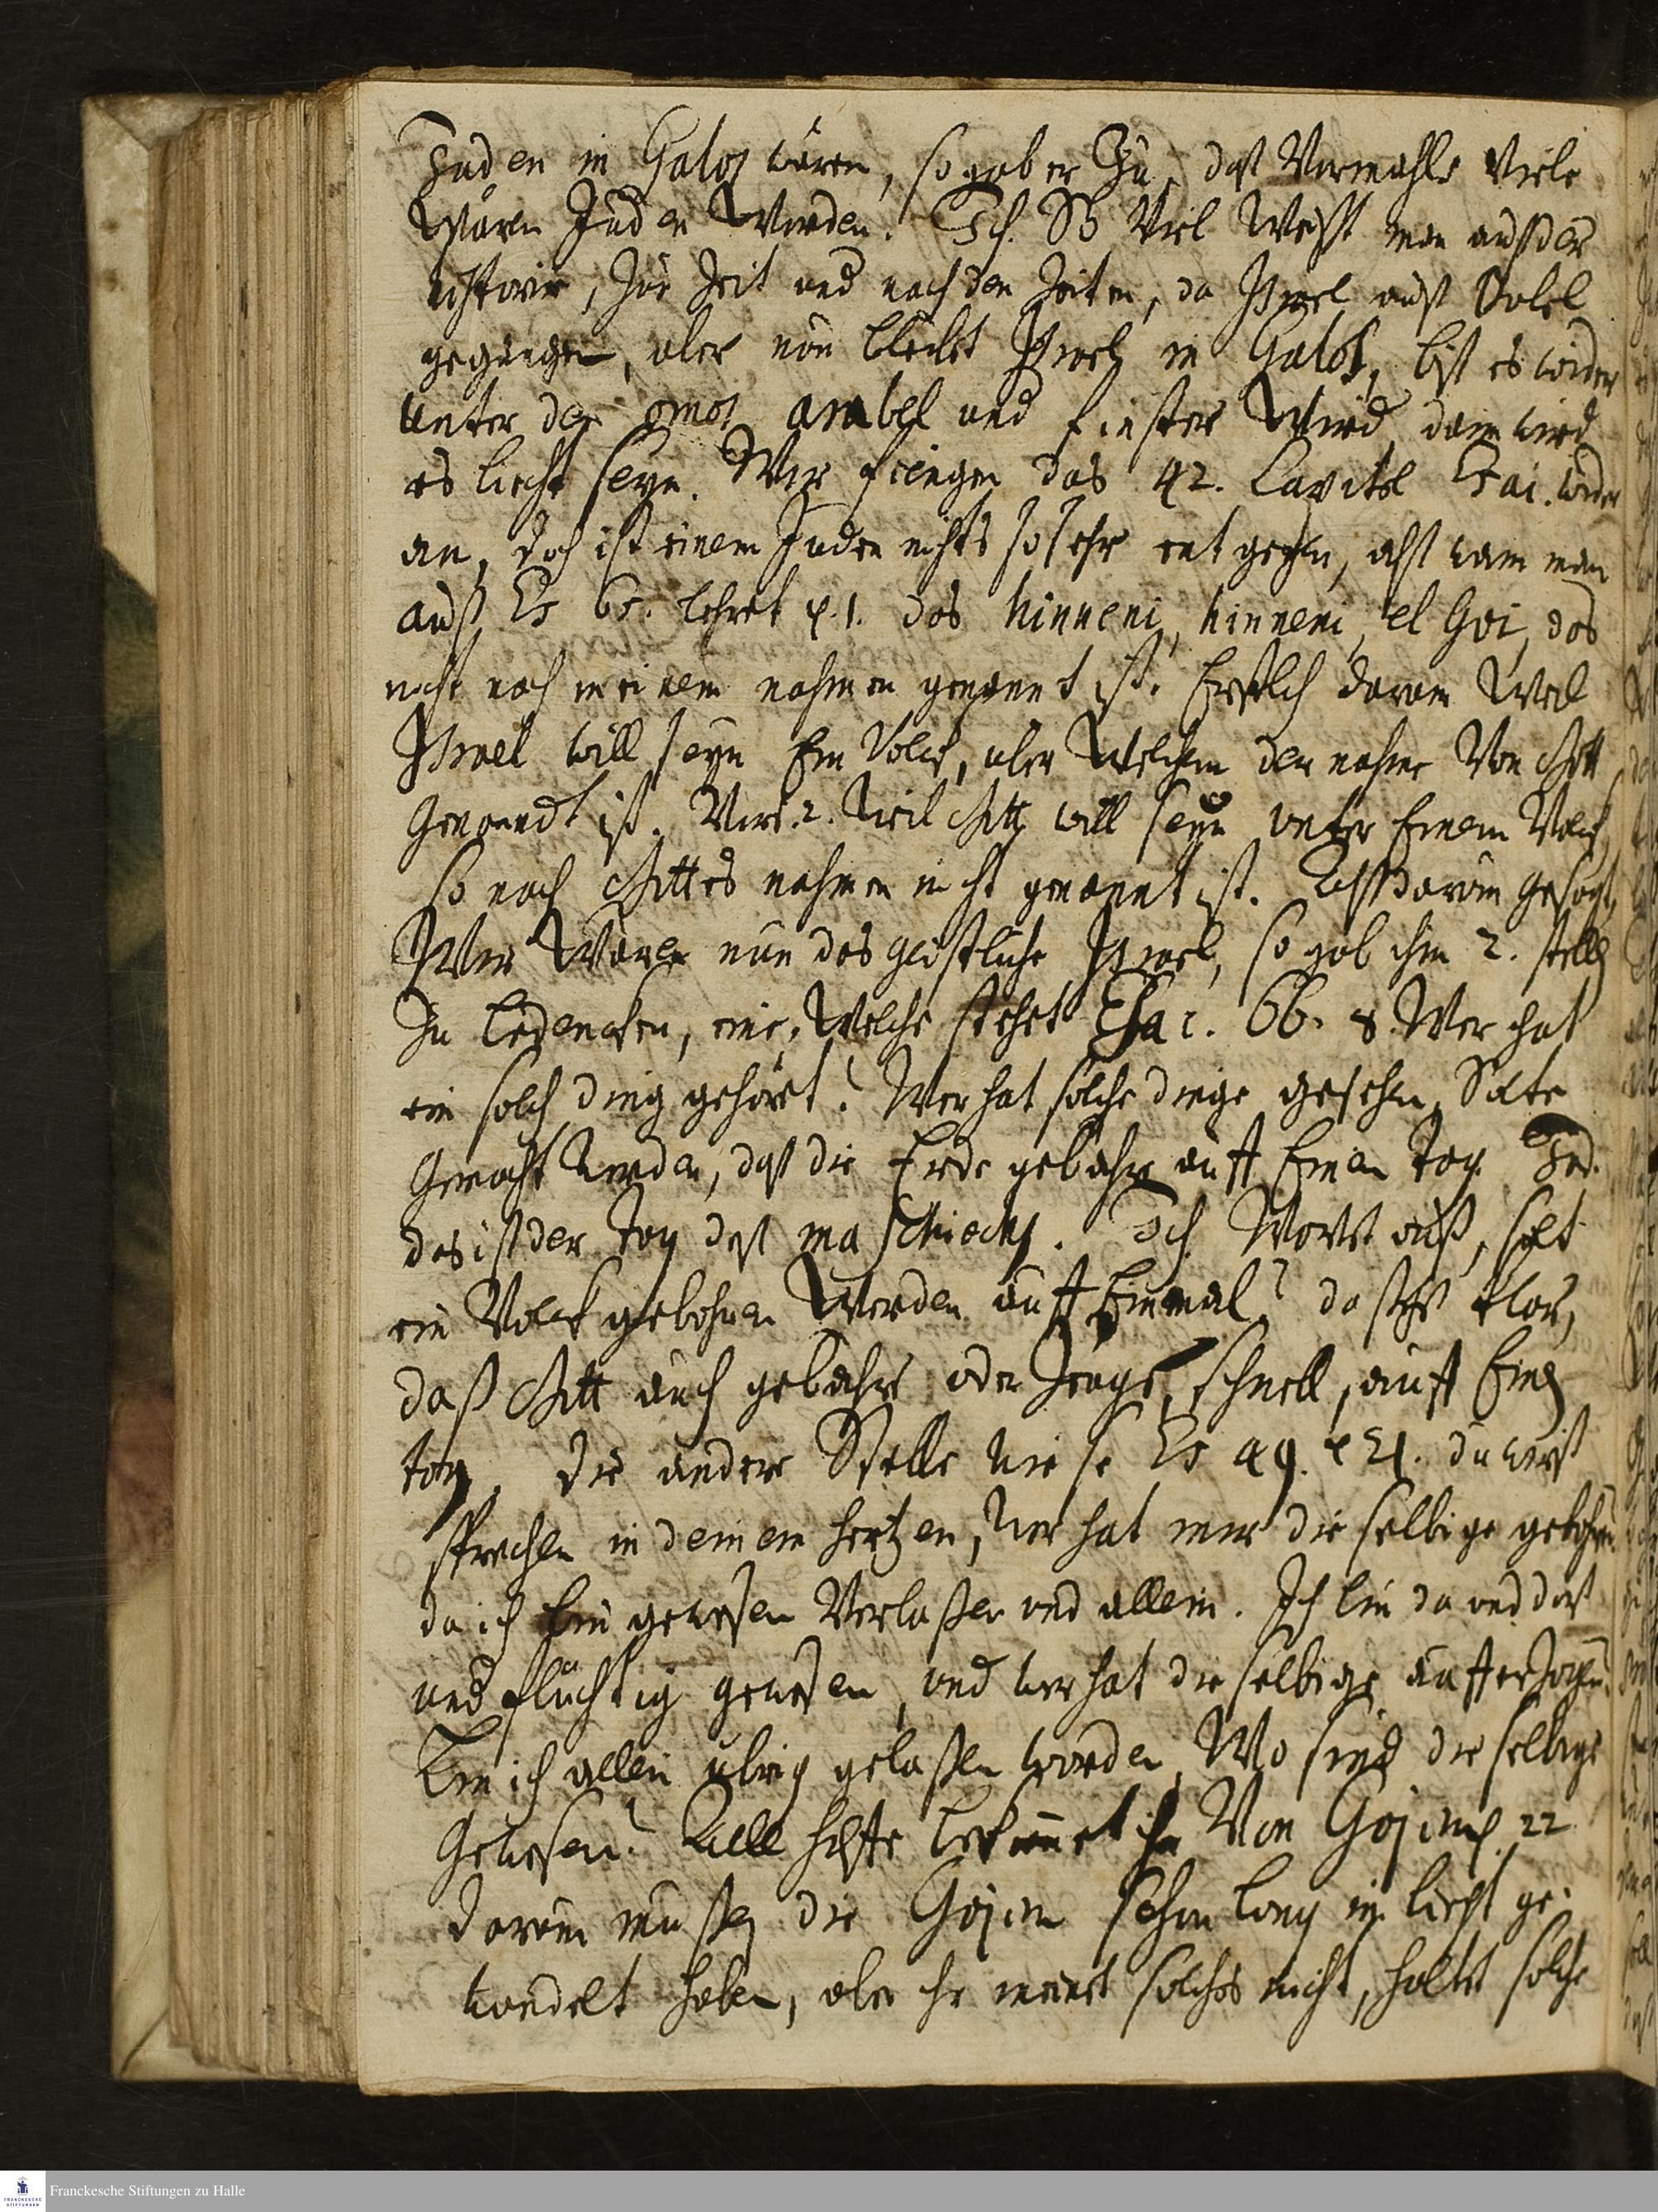 Juden in Galos wären, so gab er Zu, daß Vormahls Viele
wären Juden Worden. Ich. So Viel Weißt man außder
Historie, Zur Zeit und nach den Zeiten, da Israel auß Babel
gegangen, aber nun bleibt Israel in Galos, biß es wider
unter den omos arabel und finster Wird, dann wird
es liecht seyn. Wir fiengen das 42. Capitel Esai. wider
an, doch ist einem Juden nichts so sehr entgegen, alß wann man
auß Es 65. lehret v. 1. das hinneni, hinneni, el Goi, das
nicht nach meinem nahmen genannt ist. Erstlich darum Weil
Israel will seyn Ein Volck, uber Welchem der nahme Von Gott
Genandt ist. Vors. 2. Weil Gott will seyn unter Einem Volck,
so nach Gottes nahmen nicht genannt ist. Alß darum gesagt,
Wir Wären nun das geistliche Israel, so gab ihm 2. stellen
Zu bedencken, eine, Welche stehet Esai. 66. 8. Wer hat
ein solch ding gehöret? Wer hat solche dinge gesehen, Solte
Gemacht werden, daß die Erde gebähre auff Einen tag. Jud.
das ist der tag deß maschiachs. Ich Worst auß, solt
ein Volck gebohren Werden auff Einmal? da stehet klar,
daß Gott auch gebähre oder Zeuge, schnell, auff Einen
tag. Die andere Stelle wiese Es 49. v 21. du wirst
sprechen in deinem hertzen, wer hat mir die selbige gebohren
da ich bin gewesen Verlaßen und allein. Ich bin da und dort
und flüchtig gewesen, und wer hat die selbige aufferzogen.
Bin ich allein übrig gelaßen worden, Wo sind die selbige
Gewesen? bekennet Von Gojims 22
darum mußen die Gojim schon lang im liecht ge-
wandelt haben, aber ihr meinet solches nicht, haltet solche
Franckesche Stiftungen zu Halle